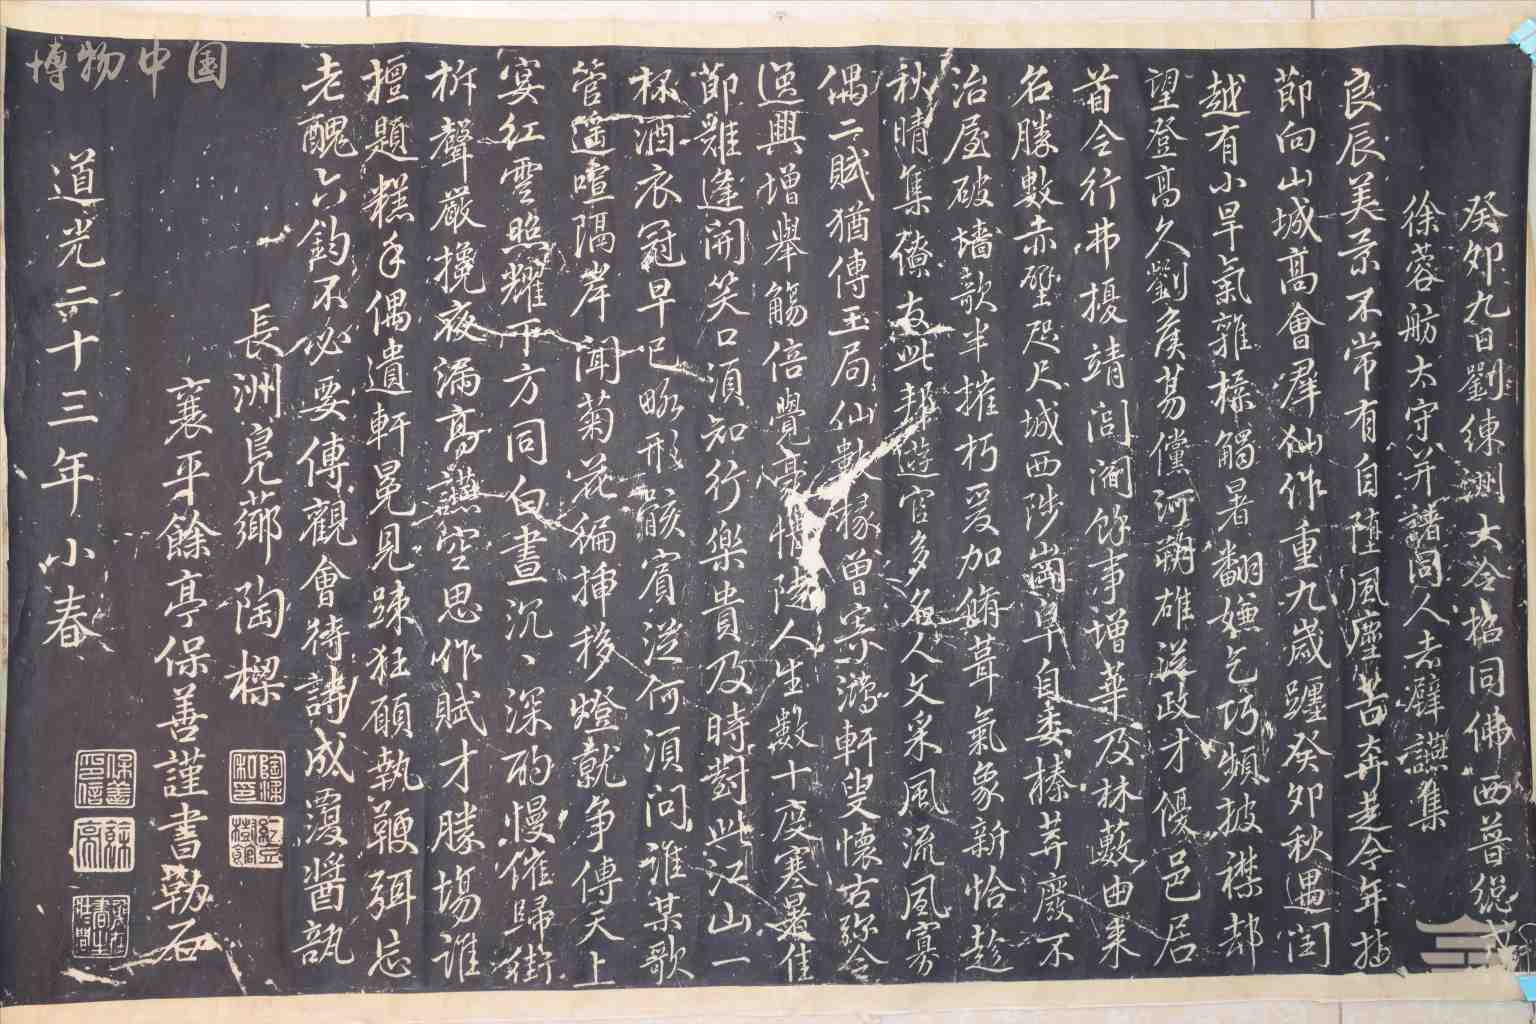 博物中国
癸卯九日劉練洲大令招同佛西普總戎
徐蓉舫太守並諸同人赤壁讌集
良辰美景不常有自墮風塵苦奔走今年插
節向山城高會羣仙作重九歲躔癸卯秋遇閏
越有小旱氣雜糅觸暑翻嫌乞巧頻披襟却
望登高久劉侯昜儻河朔雄從政才優邑居
首令行弗擾靖閭閻餘事增華及林藪由来
名勝數赤壁咫尺城西陟崗阜自委榛莽廢不
治屋破墻歌半摧朽爰加脩葺氣象新恰趁
秋晴集僚友此邦遊宦多名人文采風流夙寡
偶二賦猶傳玉局仙數椽曾寄鴻軒叟懷古弥令
逸興增舉觴倍覺豪情陡人生數十度寒暑佳
節難逢開笑口須知行樂貴及時對此江山一
杯酒衣冠早已略形骸賓從何須問誰某歌
管遥喧隔岸聞菊花徧插移燈就争傳天上
宴紅雲照耀下方同白晝沉沉深酌慢催歸街
柝聲嚴攙夜漏高讌空思作賦才勝塲誰
擅題糕手偶遺軒冕見踈狂願執鞭弭忘
老醜六鈞不必要傳觀會待詩成覆醬瓿
長洲鳧薌陶樑
襄平餘亭保善謹書勒石
道光二十三年小春
保善